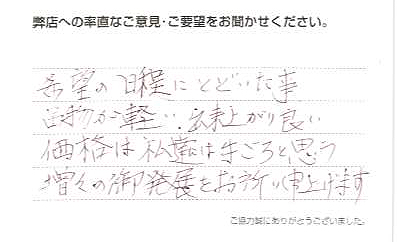 弊店への率直なご意見・ご要望をお聞かせください。
希望の日程にとどいた事
品物が軽い、出来上がり良い
価格は私達は手ごろと思う
増々の御発展をお祈い申上げます
ご協力誠にありがとうございました。